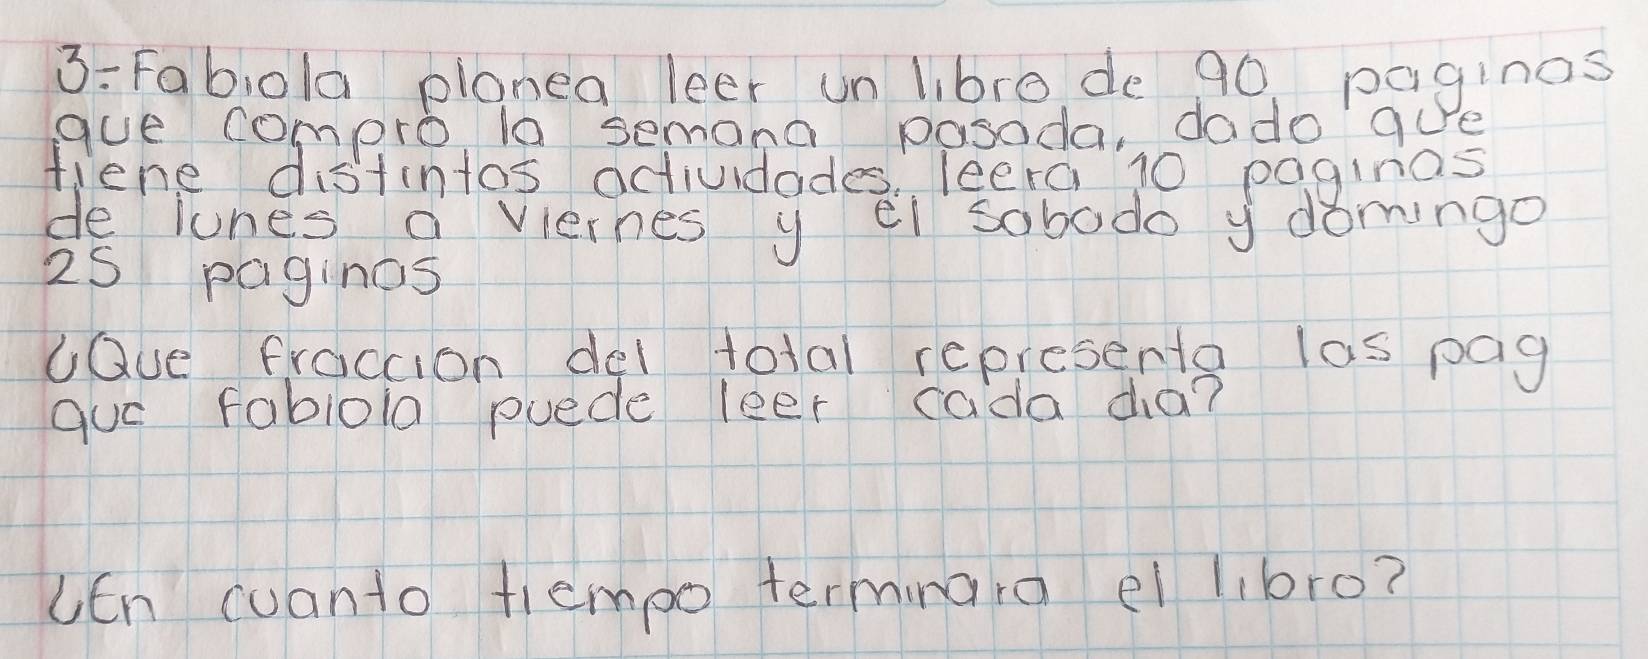 3=Fabiola planea leer un libro de 90 paginas
que compro la semana pasada, dado que
tiene distintas actividades. leera 10 paginas
de lunes a viernes y el sabado y domingo
25 paginas
¿Que fraccion del total representa las pag
que fabiola puede leer cada dia?
¿En cuanto tiempo terminara el libro?